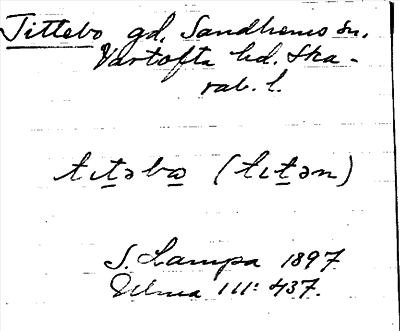 Tittebo gd, Sandhems sn,
Vartofta hd. Ska-
rab. l.
tɩtəbo (tɩtən)
S. Lampa 1897
111: 437.